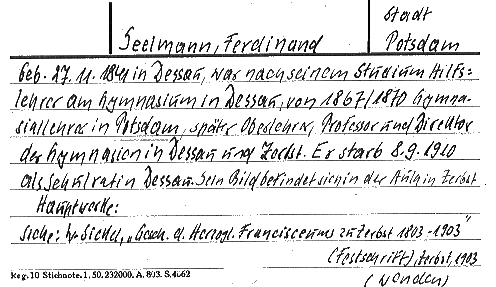 Stadt
Seelmann, Ferdinand
Potsdam
Geb. 27. 11. 1841 in Dessau, war nach seinem Studium Hilfs=
lehrer am Gymnasium in Dessau, von 1867/1870 Gymna-
siallehrer in Potsdam, später Oberlehrer, Professor und Direktor
der Gymnasien in Dessau und Zerbst. Er starb 8.9.1910
als Schulrat in Dessau. Sein Bild befindet sich in der Aula in Zerbst
Hauptwerke:
Siehe: Sickel, „Gesch. d. Herzogl. Francisceums zu Zerbst 1803-1903"
(Festschrift), Zerbst, 1903
Reg. 10 Stichnote. 1, 50. 232000. A. 803. S. 4662
(Wenden)